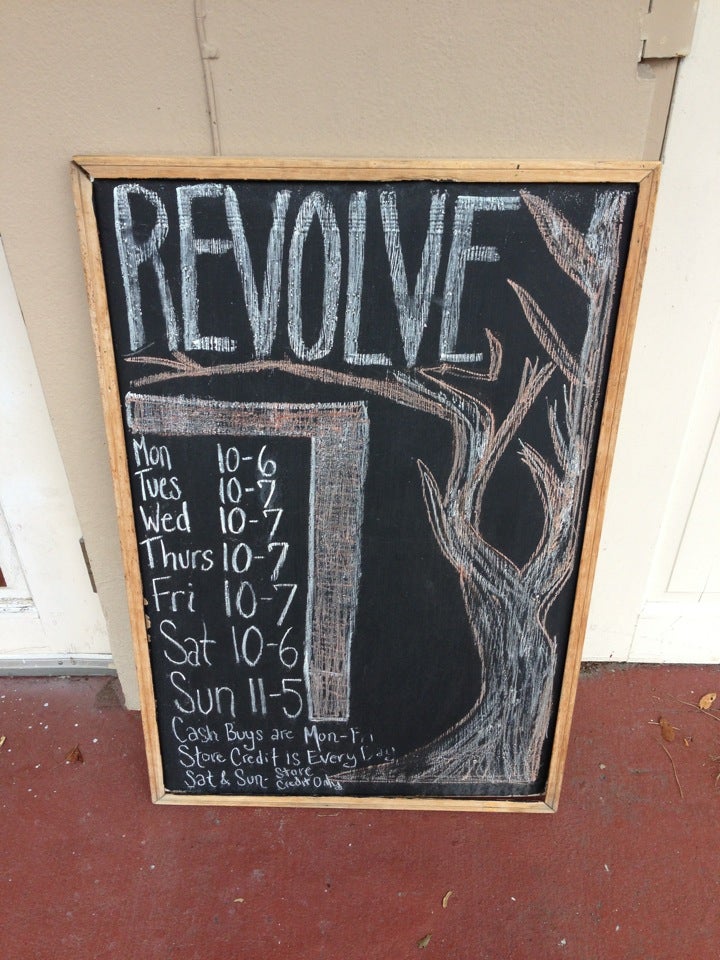 REVOLVE
Mon 10-6
Tues 10-7
Wed 10-7
Thurs 10-7
Fri 10-7
Sat 10-6
Sun 11-5
Cash Buys are Mon-Fri
Store Credit is Every Day
Sat & Sun- Store
Credit Only